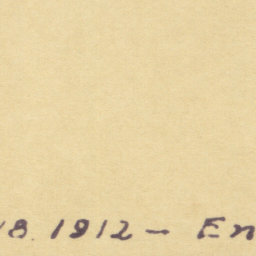 18. 1912 - En